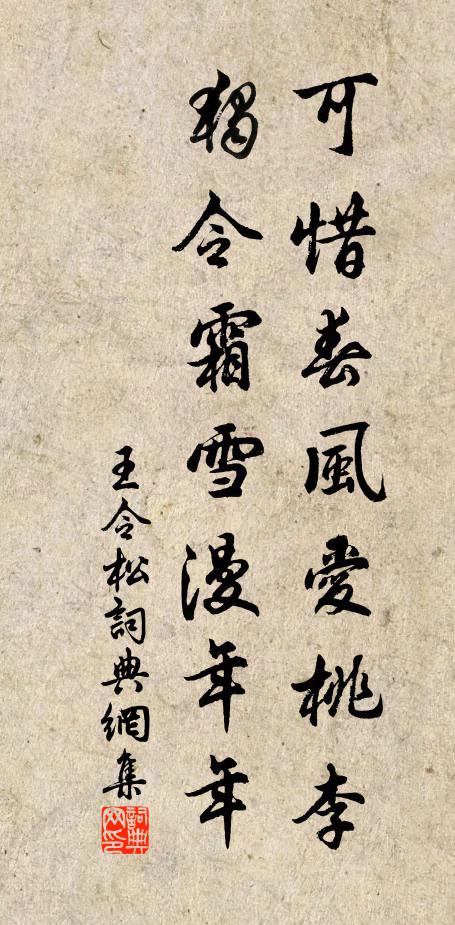 可惜春風愛桃李
獨令霜雪漫年年
王令松詞典網集
詞典網印